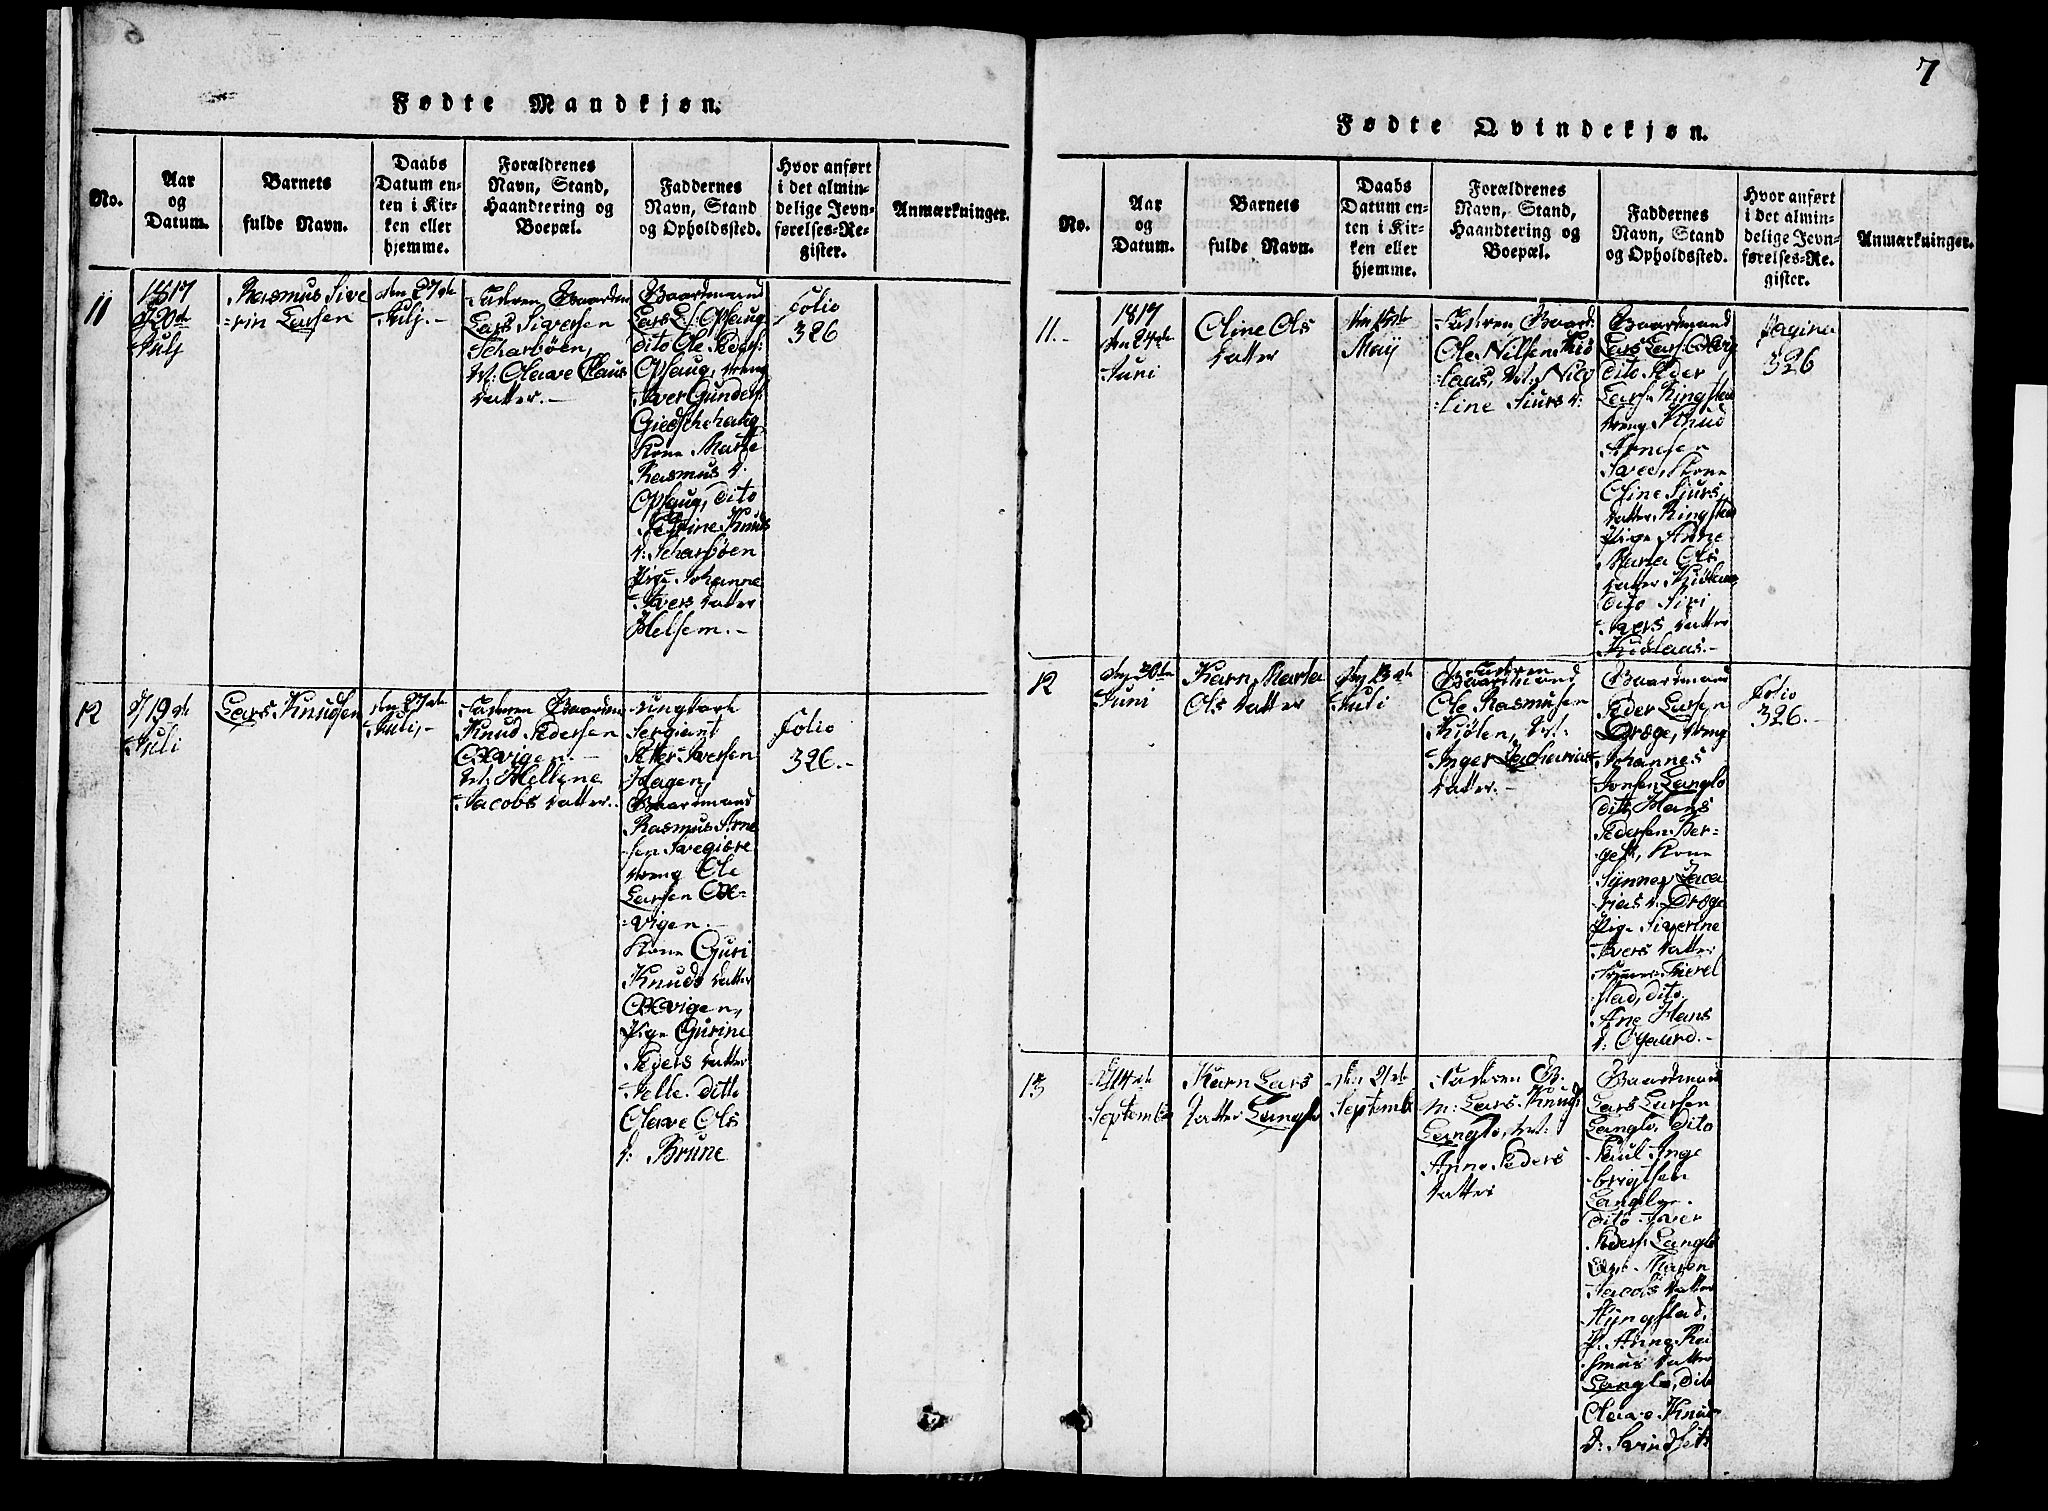 Fødte Mandkjøn.
No.
Aar
og
Datum.
Barnets
fulde Navn.
Daabs
Datum en-
ten i Kir-
ken eller
hjemme.
Forældrenes
Navn, Stand,
Haandtering og
Boepæl.
Faddernes
Navn, Stand
og Opholdssted.
Hvor anført
i det almin-
delige Jevn-
førelses-Re-
gister.
Anmærkninger.
11
1817
d 20de
Julj
Rasmus Sive
-rin Larsen
den 27de
Julj.-
Faderen Baardm
Lars Siversen
Scharbøen,
M: Olave Claus
datter.-
Baardmand
Lars L: Opsaug
dito Ole Peder:
Opsaug, dreng
Iver Gunders:
Kone Marte
Rasmus d:
Opsaug, dito
Knuds
d: Scharbøen
Pige Johanne
Ivers datter
Helsem.-
Folio
326
12
d 19de
Juli
Lars Knudsen
den 27de
Juli,-
Faderen Baardm
Knud Pedersen
Oxvigen.-
M: Hellene
Jacobs datter.
Ungkarl
Sergiant
Petter Iversen
Hagen,
Baardmand
Rasmus Arne
-sen
dreng Ole
Larsen Ox-
-vigen.-
Kone Guri
Knuds datter
Oxvigen,
Pige Gurine
Peders datter
Nelle. ditto
Olave Ols
d: Brune
Folio
326.-
7
Fødte Qvindekjøn.
No.
Aar
og
Datum.
Barnets
fulde Navn.
Daabs
Datum en-
ten i Kir-
ken eller
hjemme.
Forældrenes
Navn, Stand,
Haandtering og
Boepæl.
Faddernes
Navn, Stand
og Opholdssted.
Hvor anført
i det almin-
delige Jevn-
førelses-Re-
gister.
Anmærkninger.
11.-
1817
den 24de
Juni
Oline Ols
datter
den 15de
Maij
Faderen Baard:
Ole Nilsen Kiø
-laas, M: Nico
-line Siurs d:
Baardmand
Lars Lars:
dito Peder
Larsen Ringstad
dreng Knud
Arnesen
Kone
Oline Siurs
datter Ringstad
Pige Anne
Maria Ols
datter Kiølaas
dito Siri
Ivers datter
Kiølaas.-
Pagina
326
12
den 30de
Juni
Karn Marta
Ols datter
den 13de
Juli
Faderen
Baardmand
Ole Rasmusen
Kiølen, M:
Inger Zacharias
datter.-
Baardmand
Peder Larsen
Dræge, dreng
Johannes
Jonsen Langlo
dito Hans
Pedersen Ber-
-gest, Kone
Synnev Zaca
-rias d: Dræge
Pige Siverine
Ivers datter
-stad, dito
Ane Hans
d: Ogaurd.-
Folio
326.-
13
d 14de
September
Karn Lars
datter Langlo
den 21de
Septembr
Faderen B.
m: Lars Knuds
Langlo, M:
Anne Peders
datter
Baardmand
Lars Larsen
Langlo, dito
Paul Inge
brigtsen
Langlo.
dito Iver
Peders: Langlo
Maren
Jacobs datter
Ryngstad,
P. Anne Ras
-smus datter
Langlo, dito
Olave Knuds
d: Svindset